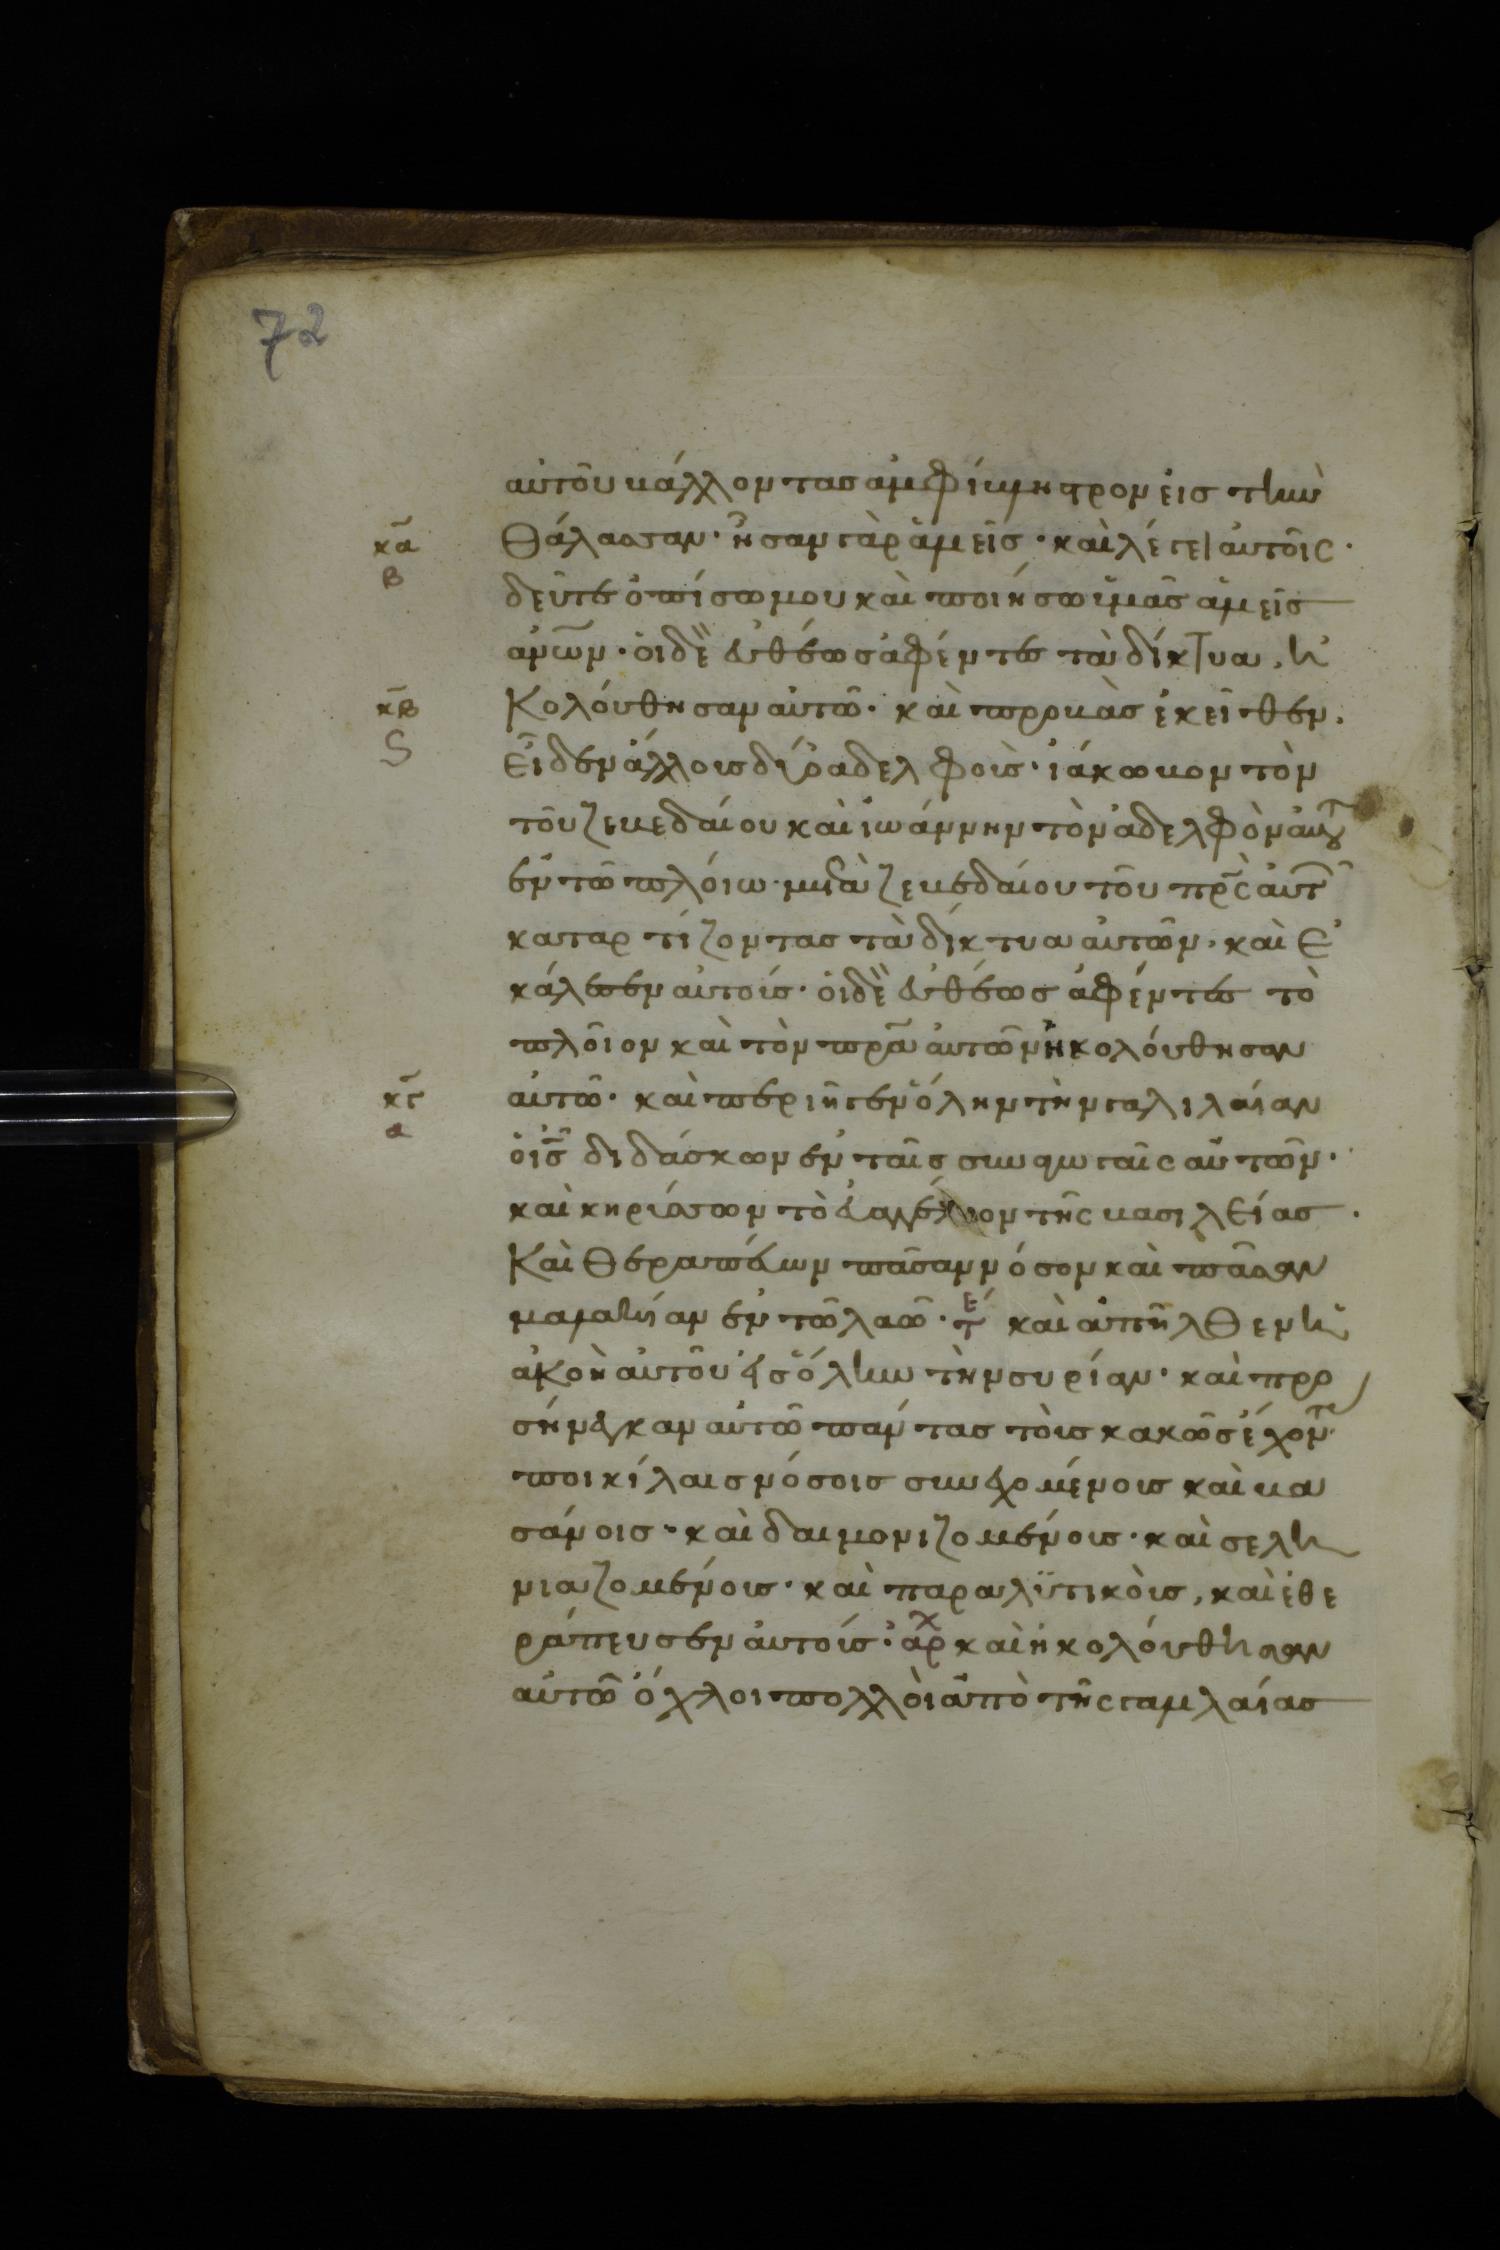 72
αὐτοῦ βάλλοντας ἀμφίβληστρον εἰς τὴν
θάλασσαν· ἦσαν γὰρ ἁλιεῖς· καὶ λέγει αὐτοῖς·
κ̅α̅
β
δεῦτε ὀπίσω μου καὶ ποιήσω ὑμᾶς ἁλιεῖς
ἀν̅ω̅ν· οἱ δὲ εὐθέως ἀφέντες τὰ δίκτυα, ἠ
κολούθησαν αὐτῶ· καὶ προβὰς ἐκεῖθεν,
κ̅β̅
ϛ
εἶδεν ἄλλους δύο ἀδελφούς· ἰάκωβον τὸν
τοῦ ζεβεδαίου καὶ ἰωάννην τὸν ἀδελφὸν αὐτοῦ
ἐν τῶ πλοίω μετὰ ζεβεδαίου τοῦ π̅ρ̅ς αὐτ
καταρτίζοντας τὰ δίκτυα αὐτῶν· καὶ ἐ
κάλεσεν αὐτούς· οἱ δὲ εὐθέως ἀφέντες τὸ
πλοῖον καὶ τὸν π̅ρ̅α αὐτῶν ἠκολούθησαν
αὐτῶ· καὶ περιῆγεν ὅλην τὴν γαλιλαίαν
κ̅γ̅
α
ὁ ι̅ς̅ διδάσκων ἐν ταῖς συναγωγαῖς αὐτῶν·
καὶ κηρύσσων τὸ εὐαγγέλιον τῆς βασιλείας·
καὶ θεραπεύων πᾶσαν νόσον καὶ πᾶσαν
μαλακίαν ἐν τῶ λαῶ· τε καὶ ἀπῆλθεν ἡ
ἀκοὴ αὐτοῦ εἰς ὅλην τὴν συρίαν· καὶ προ
σήνεγκαν αὐτῶ πάντας τοὺς κακῶς ἔχοντ
ποικίλαις νόσοις συνεχομένους καὶ βα
σάνοις· καὶ δαιμονιζομένους· καὶ σελη
νιαζομένους· καὶ παραλϋτικούς, καὶ ἐθε
ράπευσεν αὐτούς· ἀρχ καὶ ἠκολούθησαν
αὐτῶ ὄχλοι πολλοὶ ἀπὸ τῆς γαλιλαίας